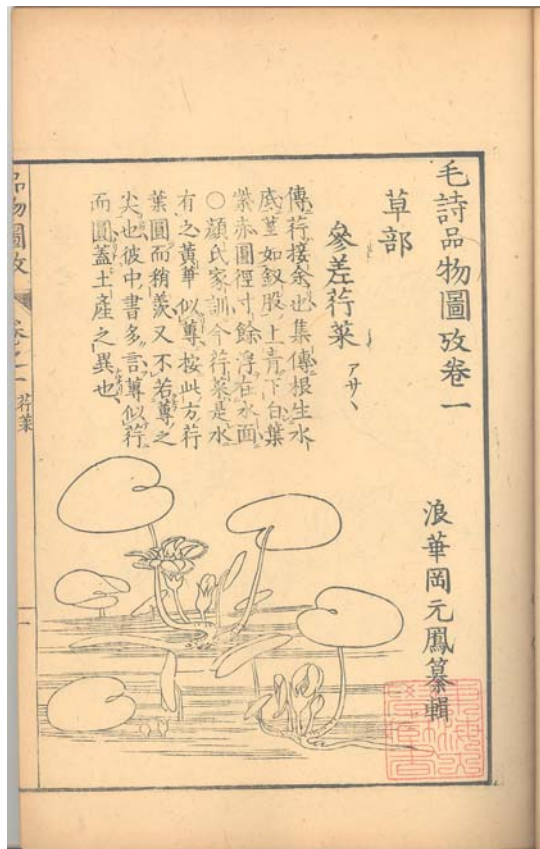 毛詩品物圖攷卷一
浪華岡元鳳纂輯
草部
參差荇菜 アサヽ
傳荇接余也集傳根生水
底莖如釵股上青下白葉
紫赤圓徑寸餘浮在水面
○顔氏家訓今荇菜是水
有之黄華似蓴按此方荇
葉圓而稍羨又不若蓴之
尖也彼中書多言蓴似荇
而圓蓋土產之異也
品物圖攷
卷之一
荇菜
一